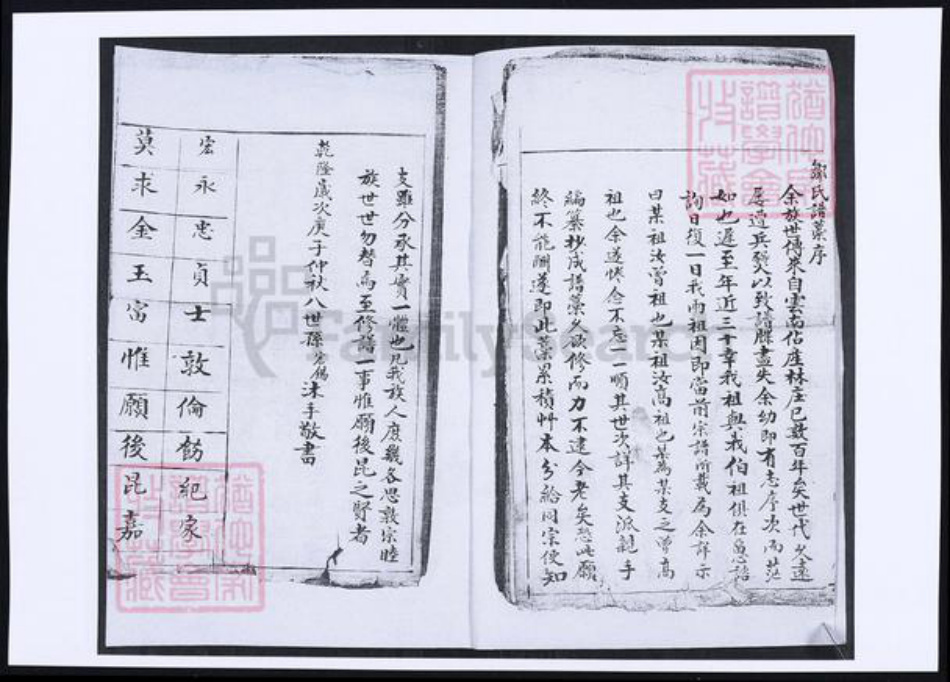 鄒氏譜藁序
余族世傳來自雲南佔産林庄已数百年矣世代久遠
屡遭兵燹以致譜牒盡失余幼即有志序次而茫
如也遲至年近三十幸我祖與我伯祖俱在急詣
詢日復一日我兩祖因即當前宗譜所載為余詳示
曰某祖汝曾祖也某祖汝高祖也某為某支之曾高
祖也余遂恍念不忘一順其世次詳其支派親手
編纂抄成譜藁久欲修而力不逮今老矣恐此願
終不能酬遂即此藁累積艸本分給同宗使知
支雖分承其實一體也凡我族人庻幾各思敦宗睦
族世世勿替焉至修譜一事惟願後昆之賢者
乾隆歲次庚子仲秋八世孫 沐手敬書
宏永忠貞士敦倫飭紀家
莫求金玉富惟願後昆嘉
FamilySearch